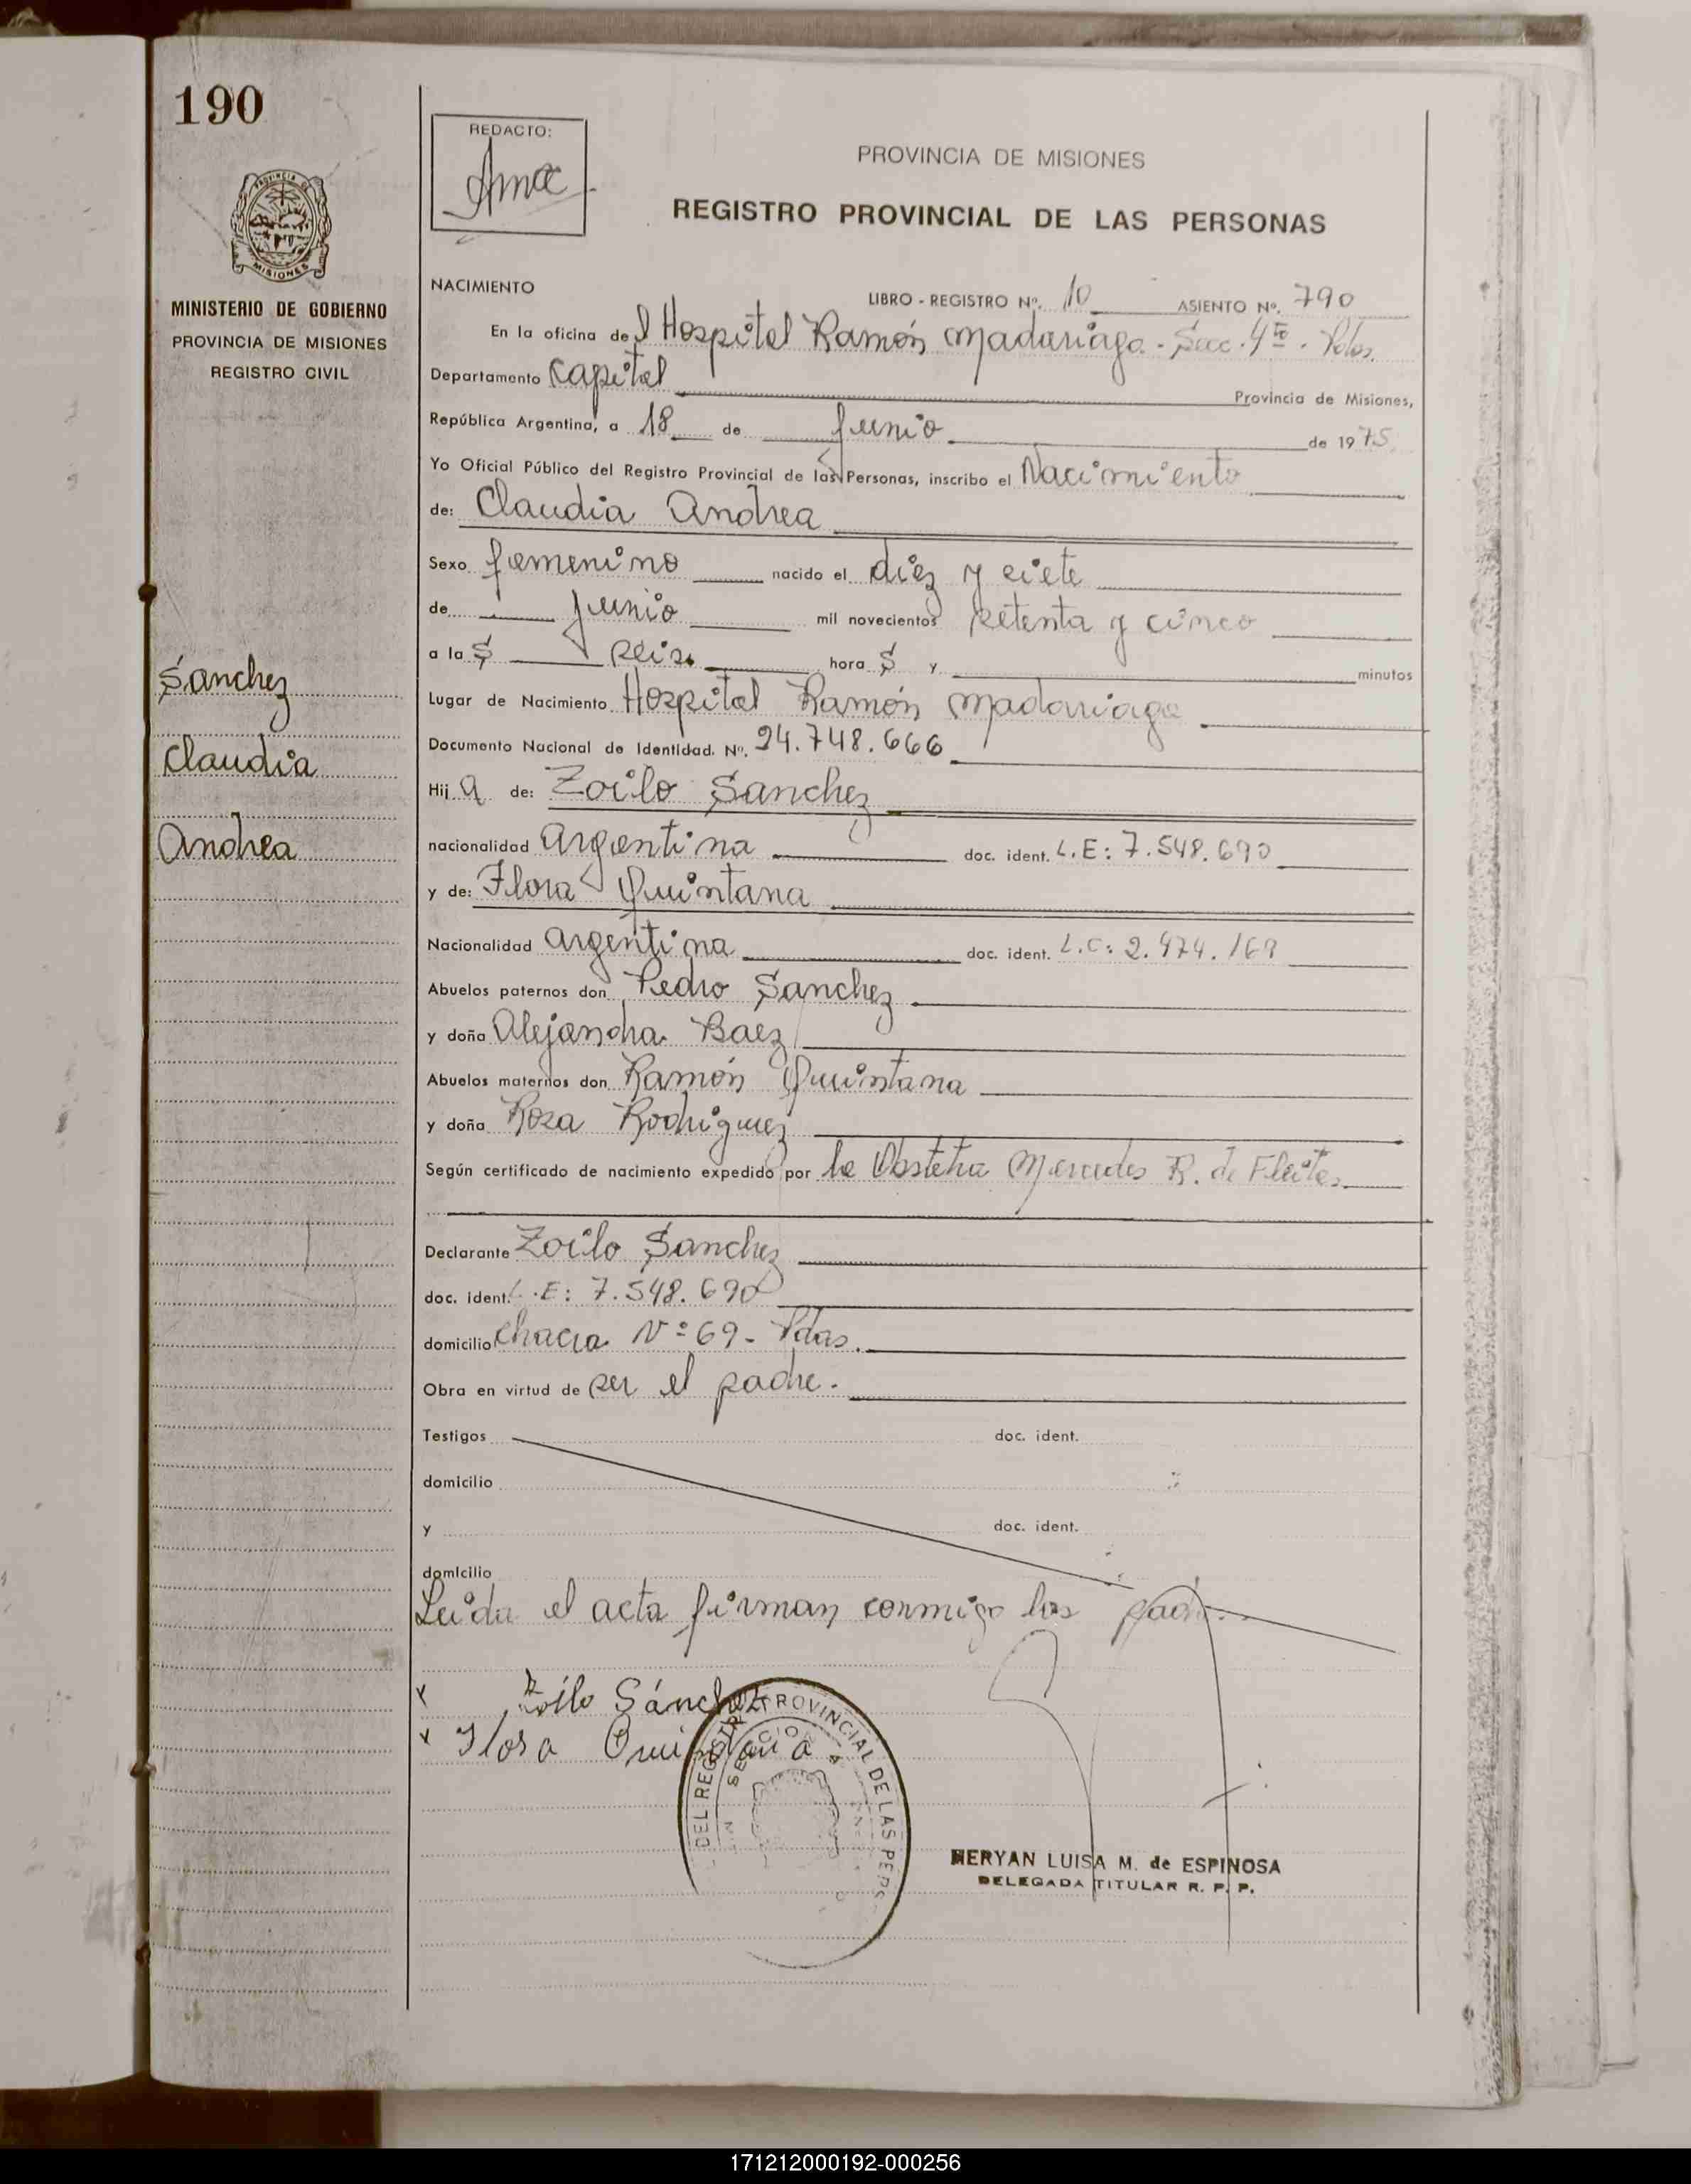 190
REDACTO:
PROVINCIA DE MISIONES
REGISTRO PROVINCIAL DE LAS PERSONAS
PROVINCIA DE
MISIONES
MINISTERIO DE GOBIERNO
PROVINCIA DE MISIONES
REGISTRO CIVIL
NACIMIENTO
LIBRO - REGISTRO Nº. 10 ASIENTO Nº. 790
En la oficina del Hospital Ramón Madariaga - Secc. 4ta - Pdas.
Departamento Capital Provincia de Misiones,
República Argentina, a 18 de Junio de 1975
Yo Oficial Público del Registro Provincial de las Personas, inscribo el Nacimiento
de: Claudia Andrea
Sexo femenino nacido el diez y siete
de Junio mil novecientos setenta y cinco
a las seis hora s y minutos
Lugar de Nacimiento Hospital Ramón Madariaga
Documento Nacional de Identidad. Nº. 24.748.666
Hija de: Zoilo Sanchez
nacionalidad Argentina doc. ident. L.E: 7.548.690
y de: Flora Quintana
Nacionalidad Argentina doc. ident. L.C: 2.974.169
Abuelos paternos don Pedro Sanchez
y doña Alejandra Baez
Abuelos maternos don Ramón Quintana
y doña Rosa Rodriguez
Según certificado de nacimiento expedido por la Obstetra Mercedes R. de Fleitas
Declarante Zoilo Sanchez
doc. ident. L.E: 7.548.690
domicilio Chacra Nº 69 - Pdas.
Obra en virtud de ser el padre.
Testigos doc. ident.
domicilio
y doc. ident.
domicilio
Leida el acta firman conmigo los
Sanchez
Claudia
Andrea
Zoilo Sánchez
Flora Quintana
DEL REGISTRO PROVINCIAL DE LAS PERS
SECCION 4
MERYAN LUISA M. de ESPINOSA
DELEGADA TITULAR R. P. P.
171212000192-000256